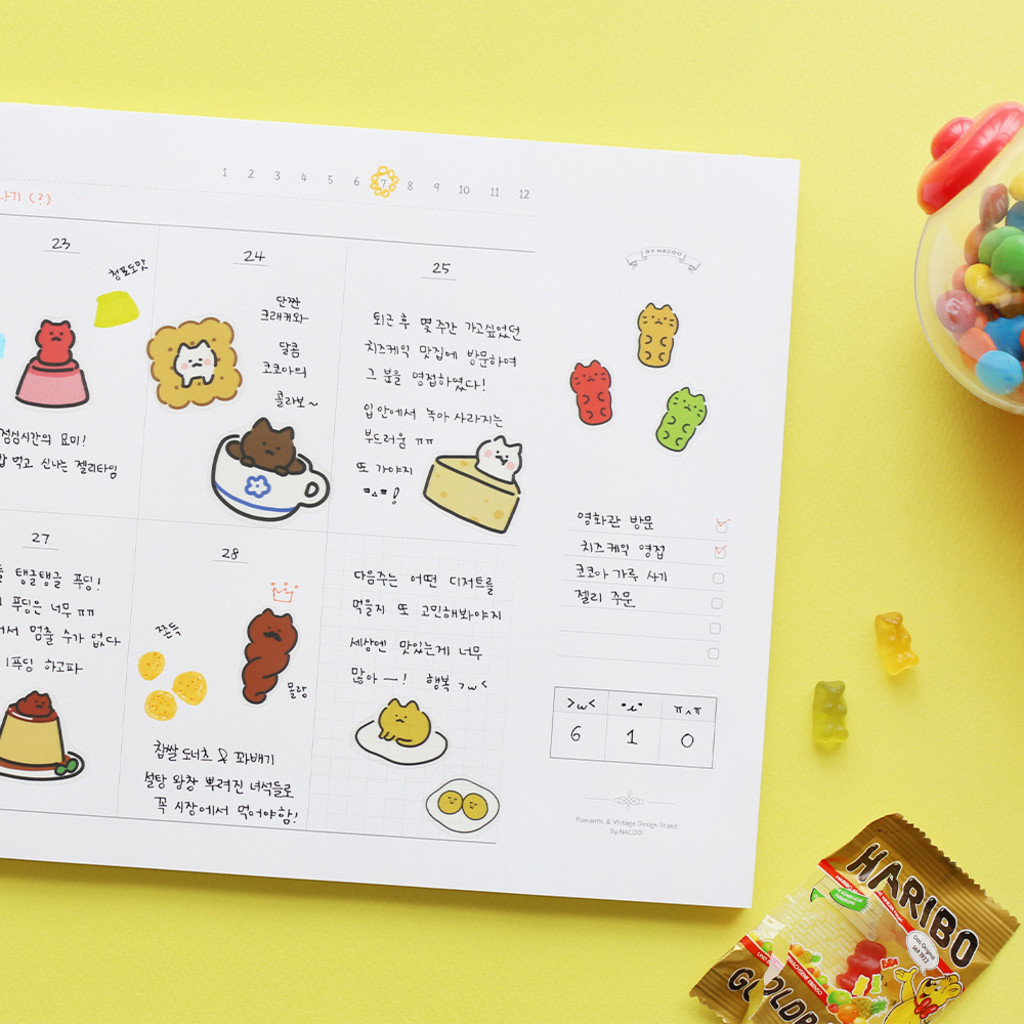 1 2 3 4 5 6 7 8 9 10 11 12
나기 (?)
23
청포도맛
점심시간의 묘미!
밥 먹고 신나는 젤리타임
24
단짠
크래커와~
달콤
코코아의
콜라보~
25
퇴근 후 몇 주간 가고싶었던
치즈케익 맛집에 방문하여
그 분을 영접하였다!
입 안에서 녹아 사라지는
부드러움 ㅠㅠ
또 가야지
!
BY.NACOO
영화관 방문
치즈케익 영접
코코아 가루 사기
젤리 주문
27
탱글탱글 푸딩!
푸딩은 너무 ㅠㅠ
멈출 수가 없다
1푸딩 하고파
28
쫀득
몰랑
찹쌀 도너츠 & 꽈배기
설탕 왕창 뿌려진 녀석들로
꼭 시장에서 먹어야함!
다음주는 어떤 디저트를
먹을지 또 고민해봐야지
세상엔 맛있는게 너무
많아 —! 행복 >w<
>w< ㅠ^ㅠ
6 1 0
Romantic & Vintage Design Brand
By.NACOO
HARIBO
Das Original
seit 1922
GOLDB